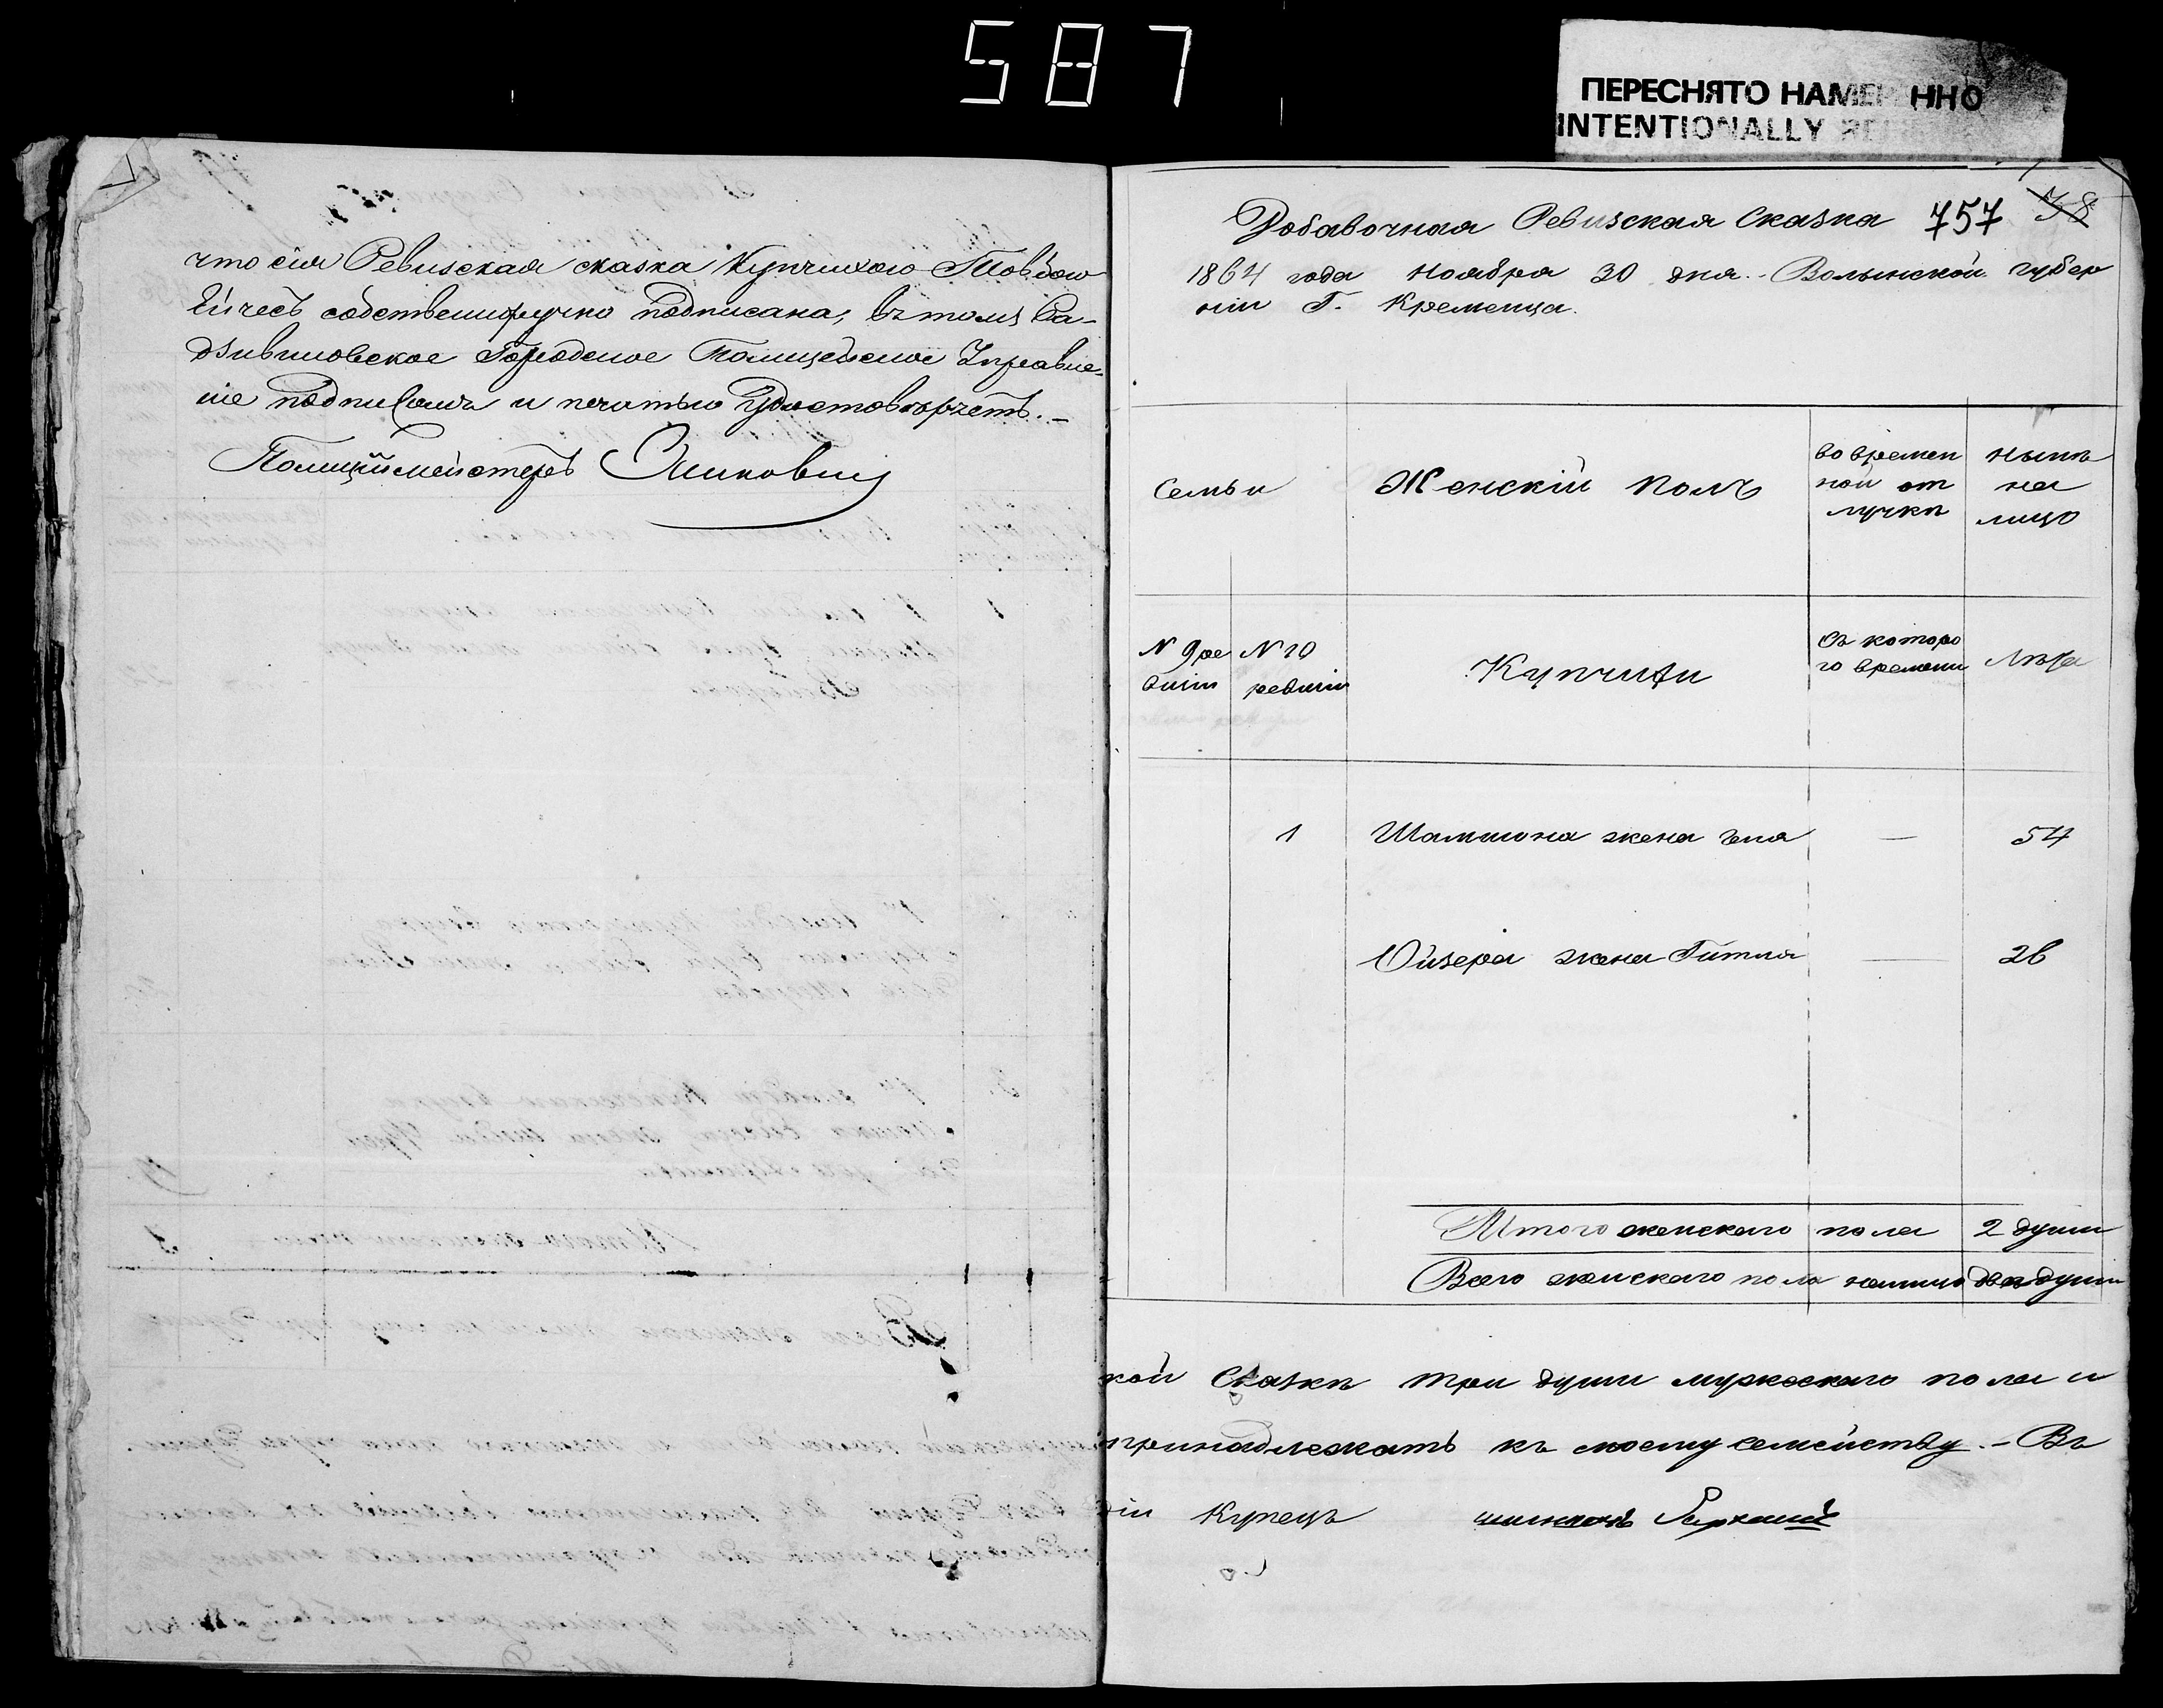 587
ПЕРЕСНЯТО НАМЕР ННО
INTENTIONALLY RE
что сія Ревизская сказка Купчихою Товбою
собственноручно подписана, въ томъ Ра-
дзивиловское Городское Полицейское Управле-
ніе подписомъ и печатью удостовѣряетъ.-
Полиціймейстеръ
Добавочная Ревизская Сказка 757 58
1864 года Ноября 30 дня.- Волынской губер
ніи Г. Кременца.
Семьи Женскій Полъ во времен ной от лучкѣ нынѣ на лицо
N 9 ре визіи N 10 ревизіи Купчихи Съ которо го времени Лѣта
1 жена — 54
Ойзера жена Гитля — 26
Итого женскаго пола 2 души
Всего женскаго пола налицо двѣ души
кой Сказкѣ три души мужескаго пола и
принадлежатъ къ моему семейству.- Въ
діи Купецъ